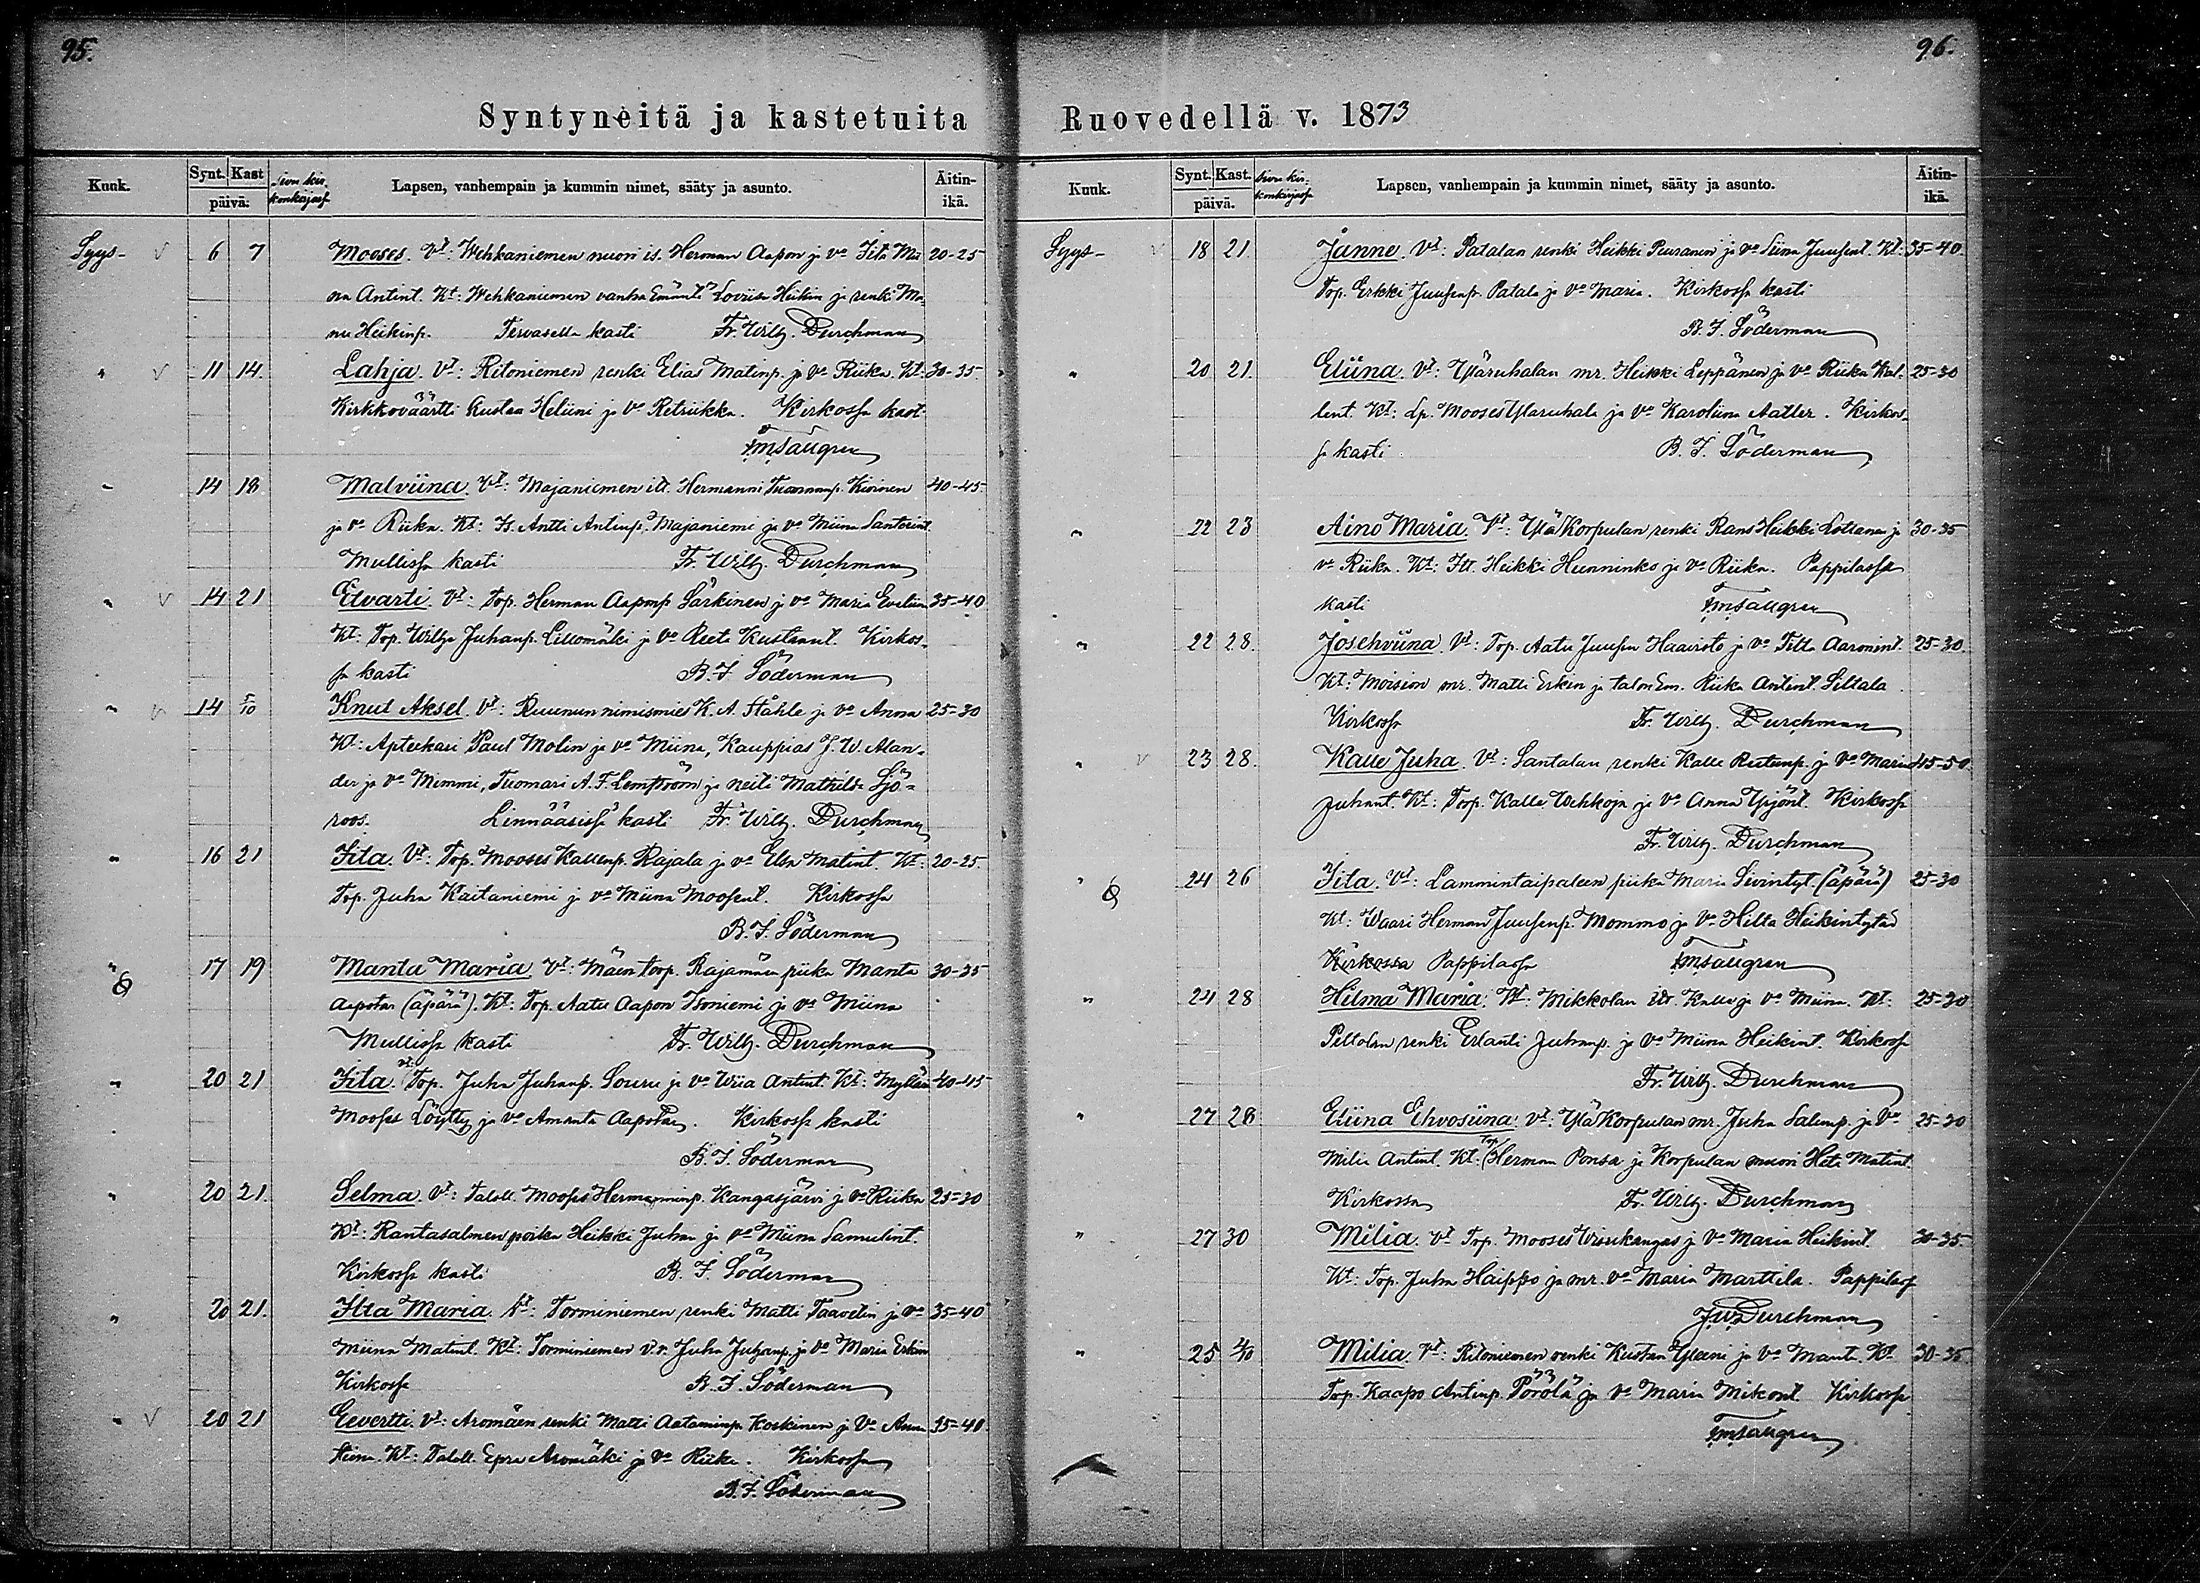 95.
Syntyneitä ja kastetuita
Kuuk.
Synt. Kast
päivä.
Sivu kir-
konkirjass
Lapsen, vanhempain ja kummin nimet, sääty ja asunto.
Äitin-
ikä.
Syys- 6 7 Mooses. Vt: Wehkaniemen nuori is. Herman Aapon ja vo Iita Ma 20-25
Antint. Kt: Wehkaniemen vanha Emäntä Loviisa Heikin ja renki Ma-
nu Heikinp. Tervasella kasti Fr. Wilh. Durchman
" 11 14 Lahja. Vt: Ritoniemen renki Elias Matinp. ja vo Riika. Kt. 30-35.
Kirkkoväärtti Kustaa Heliini ja vo Retriikka. Kirkossa kast.
" 14 18 Malviina. Vt: Majaniemen itl. Hermanni Tuomaanp. Kivinen 40-45.
ja vo Riika. Kt: Is. Antti Antinp. Majaniemi ja vo Miina Santerint.
Mullissa kasti Fr. Wilh. Durchman
" 14 21 Etvarti. Vt: Top. Herman Aaponp Särkinen ja vo Maria Eveliina 35-40
Kt: Top. Wilhja Juhanp. Lillomäki ja vo Reeta Kustaant. Kirkos-
sa kasti B. F. Söderman
" 14 5/10 Knut Aksel. Vt: Ruunun nimismies K. A. Ståhle ja vo Anna 25-30
Kt: Apteekari Paul Molin ja vo Miina, Kauppias J. W. Alan-
der ja vo Mimmi, Tuomari A. F. Lemström ja neiti Mathilda Sjö-
roos. Linnääsissä kasti Fr. Wilh. Durchman
" 16 21 Iita. Vt: Top. Mooses Kallenp. Rajala ja vo Elsa Matint. Kt: 20-25.
Top. Juha Kaitaniemi ja vo Miina Moosest. Kirkossa
B. F. Söderman
" 17 19 Manta Maria. Vt: Mäen torp. Rajamäen piika Manta 30-35
Aapotar (äpärä). Kt: Top. Aatu Aapon Isoniemi ja vo Miina
Mullissa kasti Fr. Wilh. Durchman
" 20 21 Iita. Vt. Top. Juha Juhanp. Souru ja vo Wiia Antint. Kt: Mylläri 40-45
Mooses Löytty ja vo Amanta Aapotar. Kirkossa kasti
B. F. Söderman
" 20 21. Selma. Vt: Taloll. Mooses Hermanninp. Kangasjärvi ja vo Riika 25-30
Kt: Rantasalmen poika Heikki Juhan ja vo Miina Samulint.
Kirkossa kasti B. F. Söderman
" 20 21. Ilta Maria. Vt: Torminiemen renki Matti Taavetin ja vo 35-40
Miina Matint. Kt: Torminiemen v.r. Juha Juhanp. ja vo Maria Erkin
Kirkossa B. F. Söderman
" 20 21 Eevertti. Vt: Aromäen renki Matti Aataminp. Koskinen ja vo Anna 35-40.
Stiina. Kt: Taloll. Epra Aromäki ja vo Riika. Kirkossa
B. F. Söderman
96.
Ruovedellä v. 1873
Kuuk.
Synt. Kast.
päivä.
Sivu kir-
konkirjassa
Lapsen, vanhempain ja kummin nimet, sääty ja asunto.
Äitin-
ikä.
Syys- 18 21. Janne. Vt: Patalan renki Heikki Puuranen ja vo Siina Juusent. Kt: 35-40.
Top. Erkki Juusenp. Patala ja vo Maria. Kirkossa kasti
B. F. Söderman
" 20 21. Eliina. Vt: Yläruhalan mr. Heikki Leppänen ja vo Riika Kal- 25-30
lent. Kt: Lp. Mooses Ylaruhala ja vo Karoliina Aatler. Kirkos-
sa kasti B. F. Söderman
" 22 23 Aino Maria. Vt: Ylä Korpulan renki Rans Heikki Lottanen ja 30-35
vo Riika. Kt: Itl. Heikki Hunninko ja vo Riika. Pappilassa
kasti
" 22 28. Josehviina. Vt: Top. Aatu Juusen Haavisto ja vo Iita Aaronint. 25-30.
Kt: Moision mr. Matti Erkin ja talon Em. Riika Antint. Siltala.
Kirkossa Fr. Wilh. Durchman
" 23 28. Kalle Juha. Vt: Santalan renki Kalle Reetunp. ja vo Maria 45-50.
Juhant. Kt: Torp. Kalle Wehkoja ja vo Anna Yrjönt. Kirkossa
Fr. Wilh. Durchman
" 24 26 Iita. Vt: Lammintaipaleen piika Maria Sivintyt. (äpärä) 25-30
Kt: Waari Herman Juusenp. Mommo ja vo Helta Heikintytär
Kirkossa Pappilassa
" 24 28 Hilma Maria. Vt: Mikkolan itl. Kalle ja vo Miina. Kt: 25-30
Peltolan renki Erlanti Juhanp. ja vo Miina Heikint. Kirkossa
Fr. Wilh. Durchman
" 27 28 Eliina Ehvosiina. Vt: Ylä Korpulan mr. Juha Salenp. ja vo 25-30
Milia Antint. Kt: Top. Herman Ponsa ja Korpulan nuori Heta Matint.
Kirkossa Fr. Wilh. Durchman
" 27 30 Milia. Vt. Top. Mooses Wisukangas ja vo Maria Heikint. 30-35.
Kt: Top. Juha Haippo ja mr. vo Maria Marttila. Pappilassa
F. W. Durchman
" 25 2/10 Milia. Vt: Ritoniemen renki Kustaa Yleeni ja vo Manta. Kt. 30-35.
Top. Kaapo Antinp. Pörölä ja vo Maria Mikont. Kirkossa